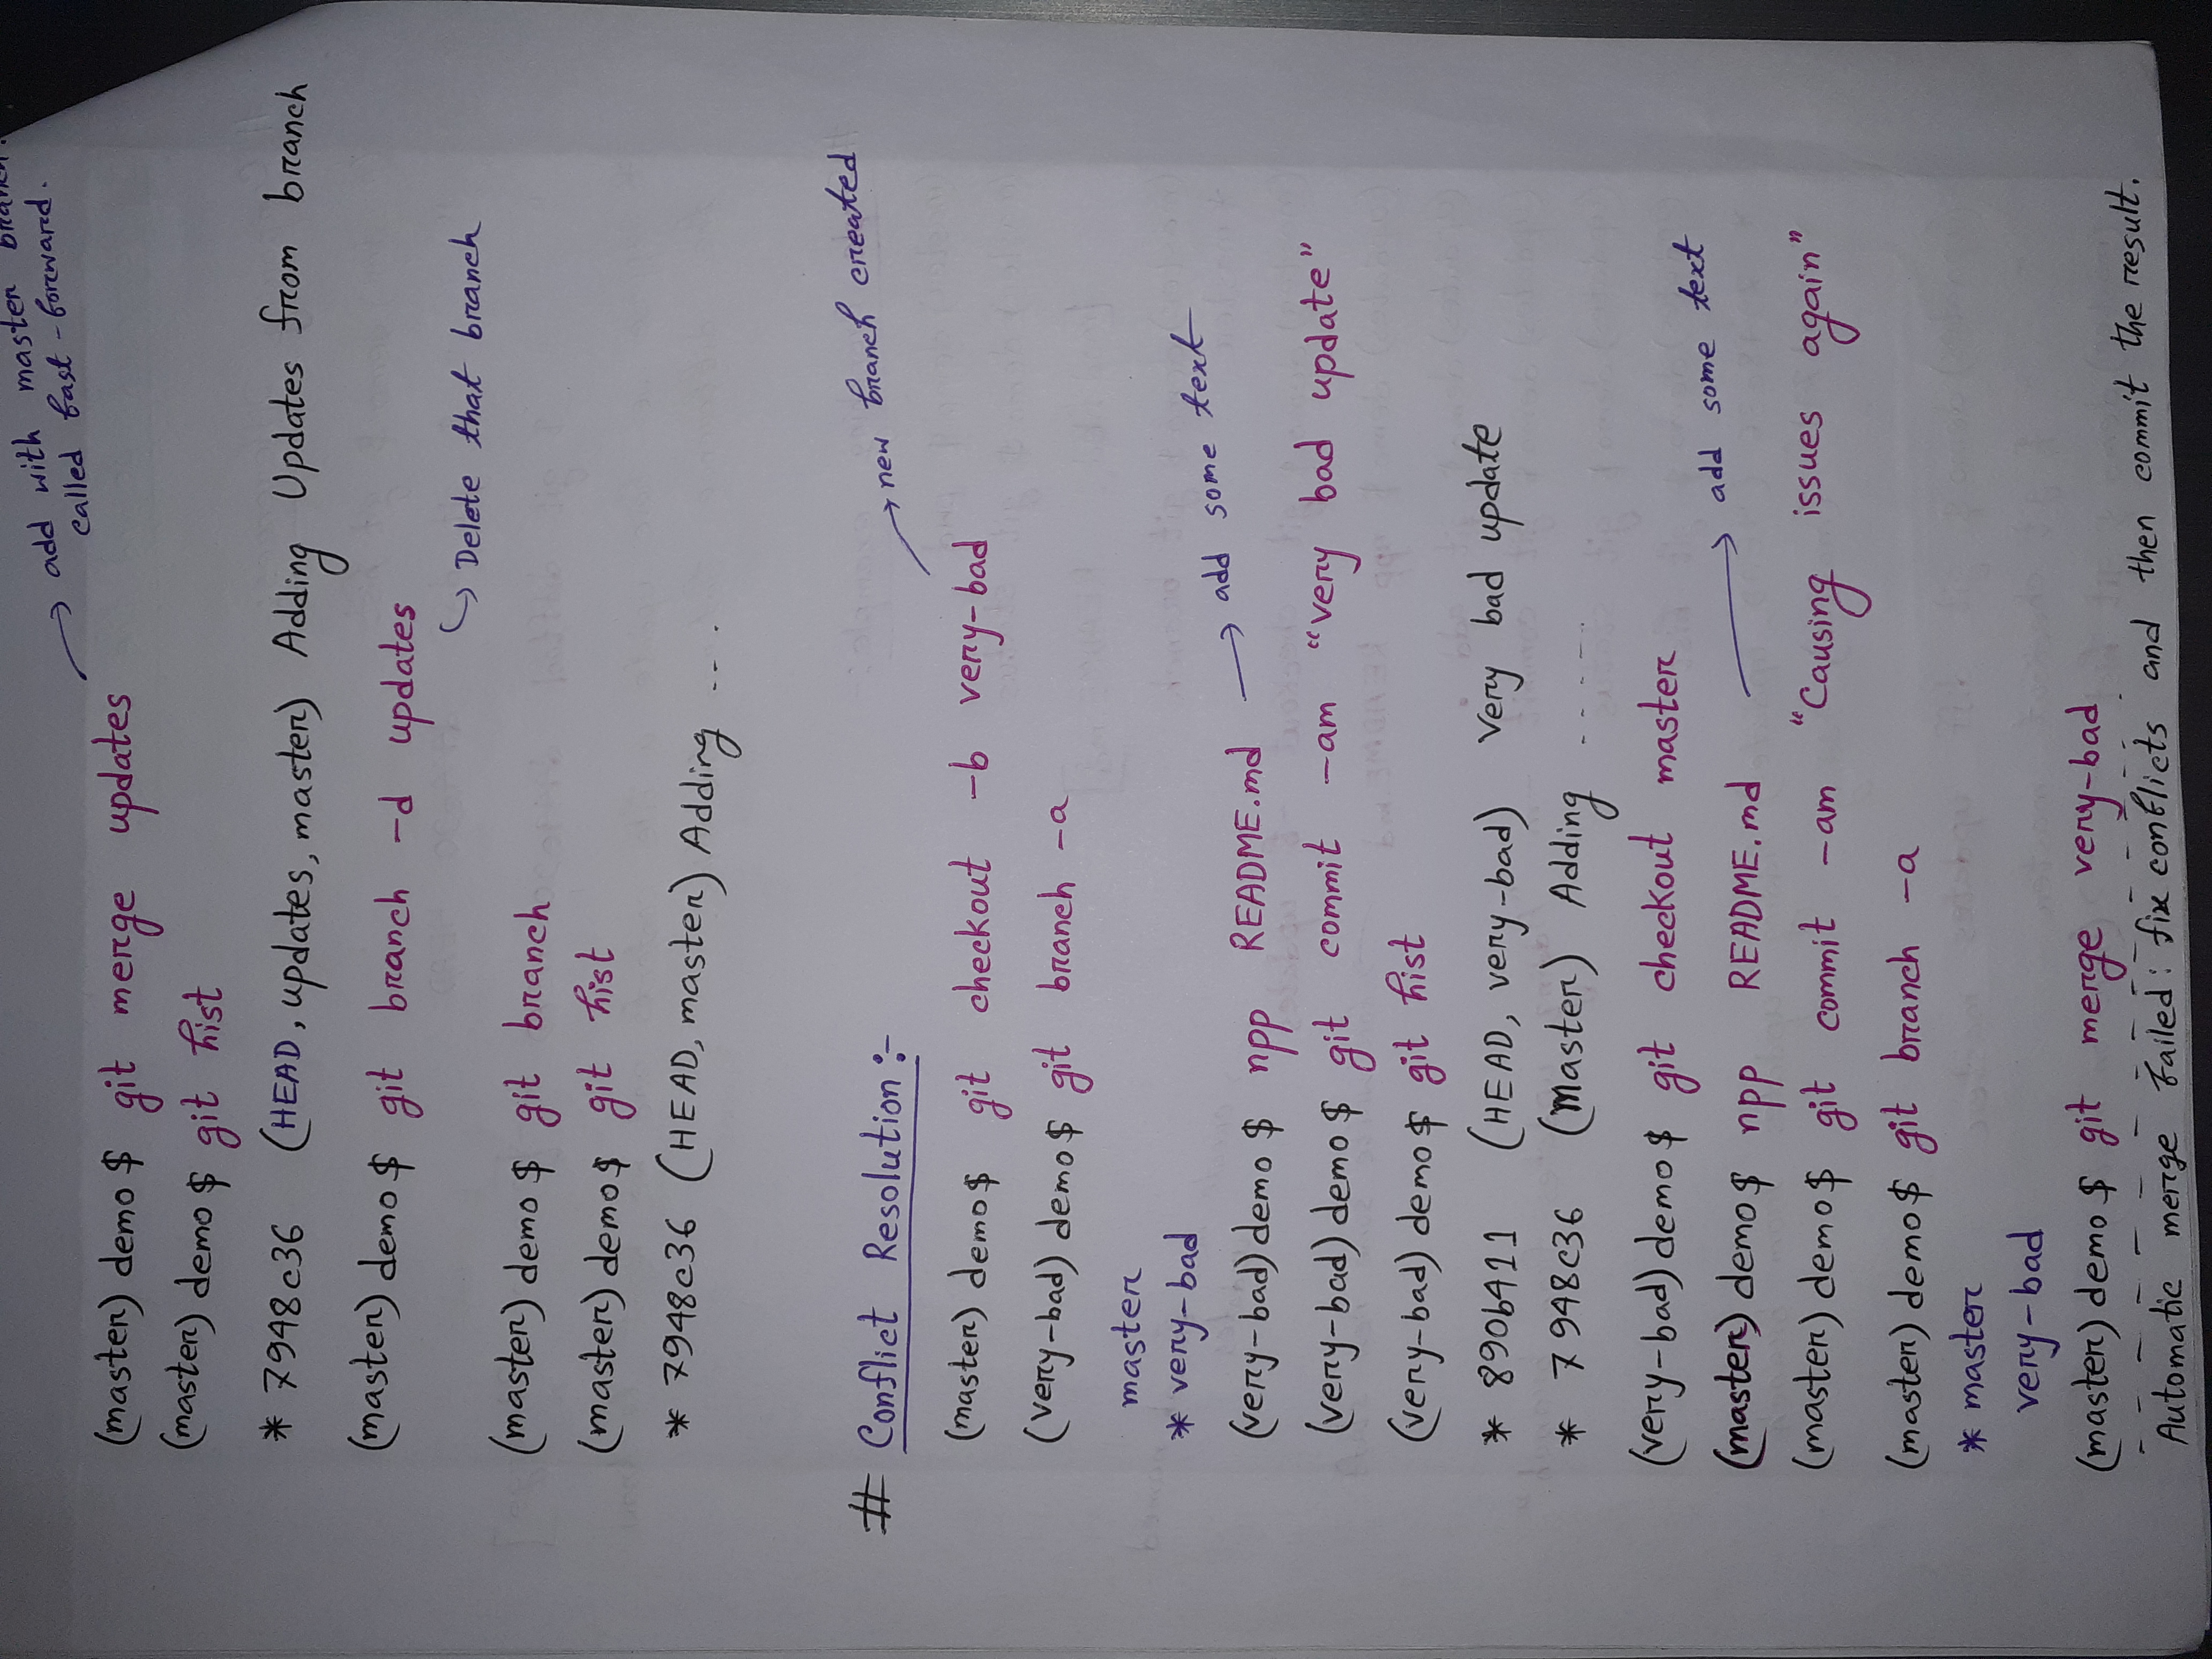 add with master branch.
called fast-forward.
(master) demo $ git merge updates
(master) demo $ git hist
* 7948c36 (HEAD, updates, master) Adding Updates from branch
(master) demo $ git branch -d updates
Delete that branch
(master) demo $ git branch
(master) demo $ git hist
* 7948c36 (HEAD, master) Adding ....
# Conflict Resolution :-
new branch created
(master) demo $ git checkout -b very-bad
(very-bad) demo $ git branch -a
master
* very-bad
(very-bad) demo $ npp README.md → add some text
(very-bad) demo $ git commit -am "very bad update"
(very-bad) demo $ git hist
* 890b411 (HEAD, very-bad) Very bad update
* 7948c36 (Master) Adding ......
(very-bad) demo $ git checkout master
(master) demo $ npp README.md → add some text
(master) demo $ git commit -am "Causing issues again"
(master) demo $ git branch -a
* master
very-bad
(master) demo $ git merge very-bad
Automatic merge failed: fix conflicts and then commit the result.